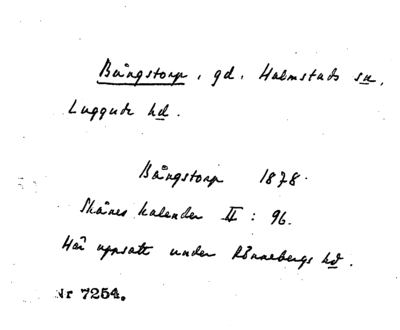 Bångstorp, gd. Halmstads sn,
Luggude hd.
Bångstorp 1878.
Skånes kalender II : 96.
Här uppsatt under Rönnebergs hd.
Nr 7254.